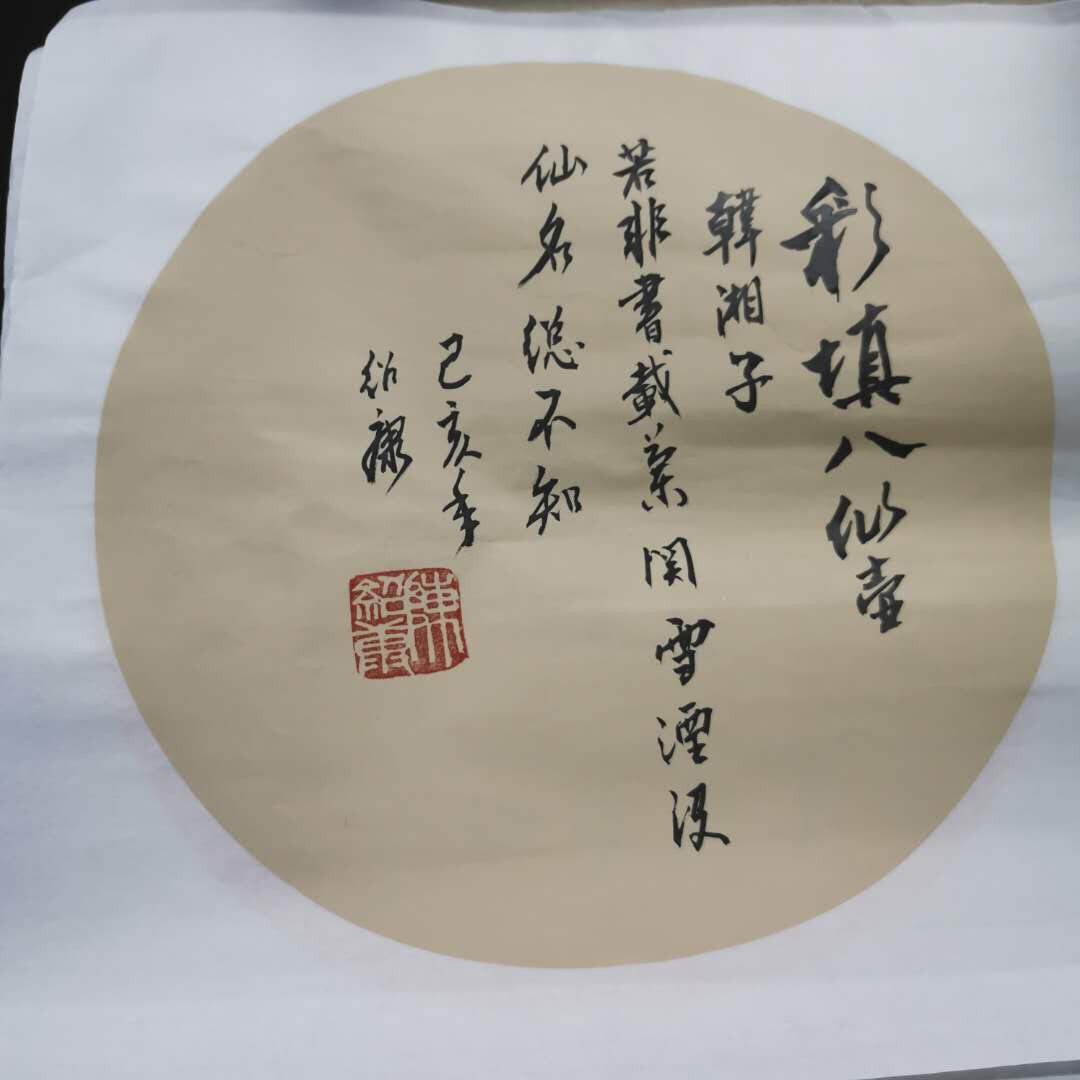 彩填八仙壺
韓湘子
若非書載蘭関雪湮没
仙名總不知
己亥年
紹康
陳紹康